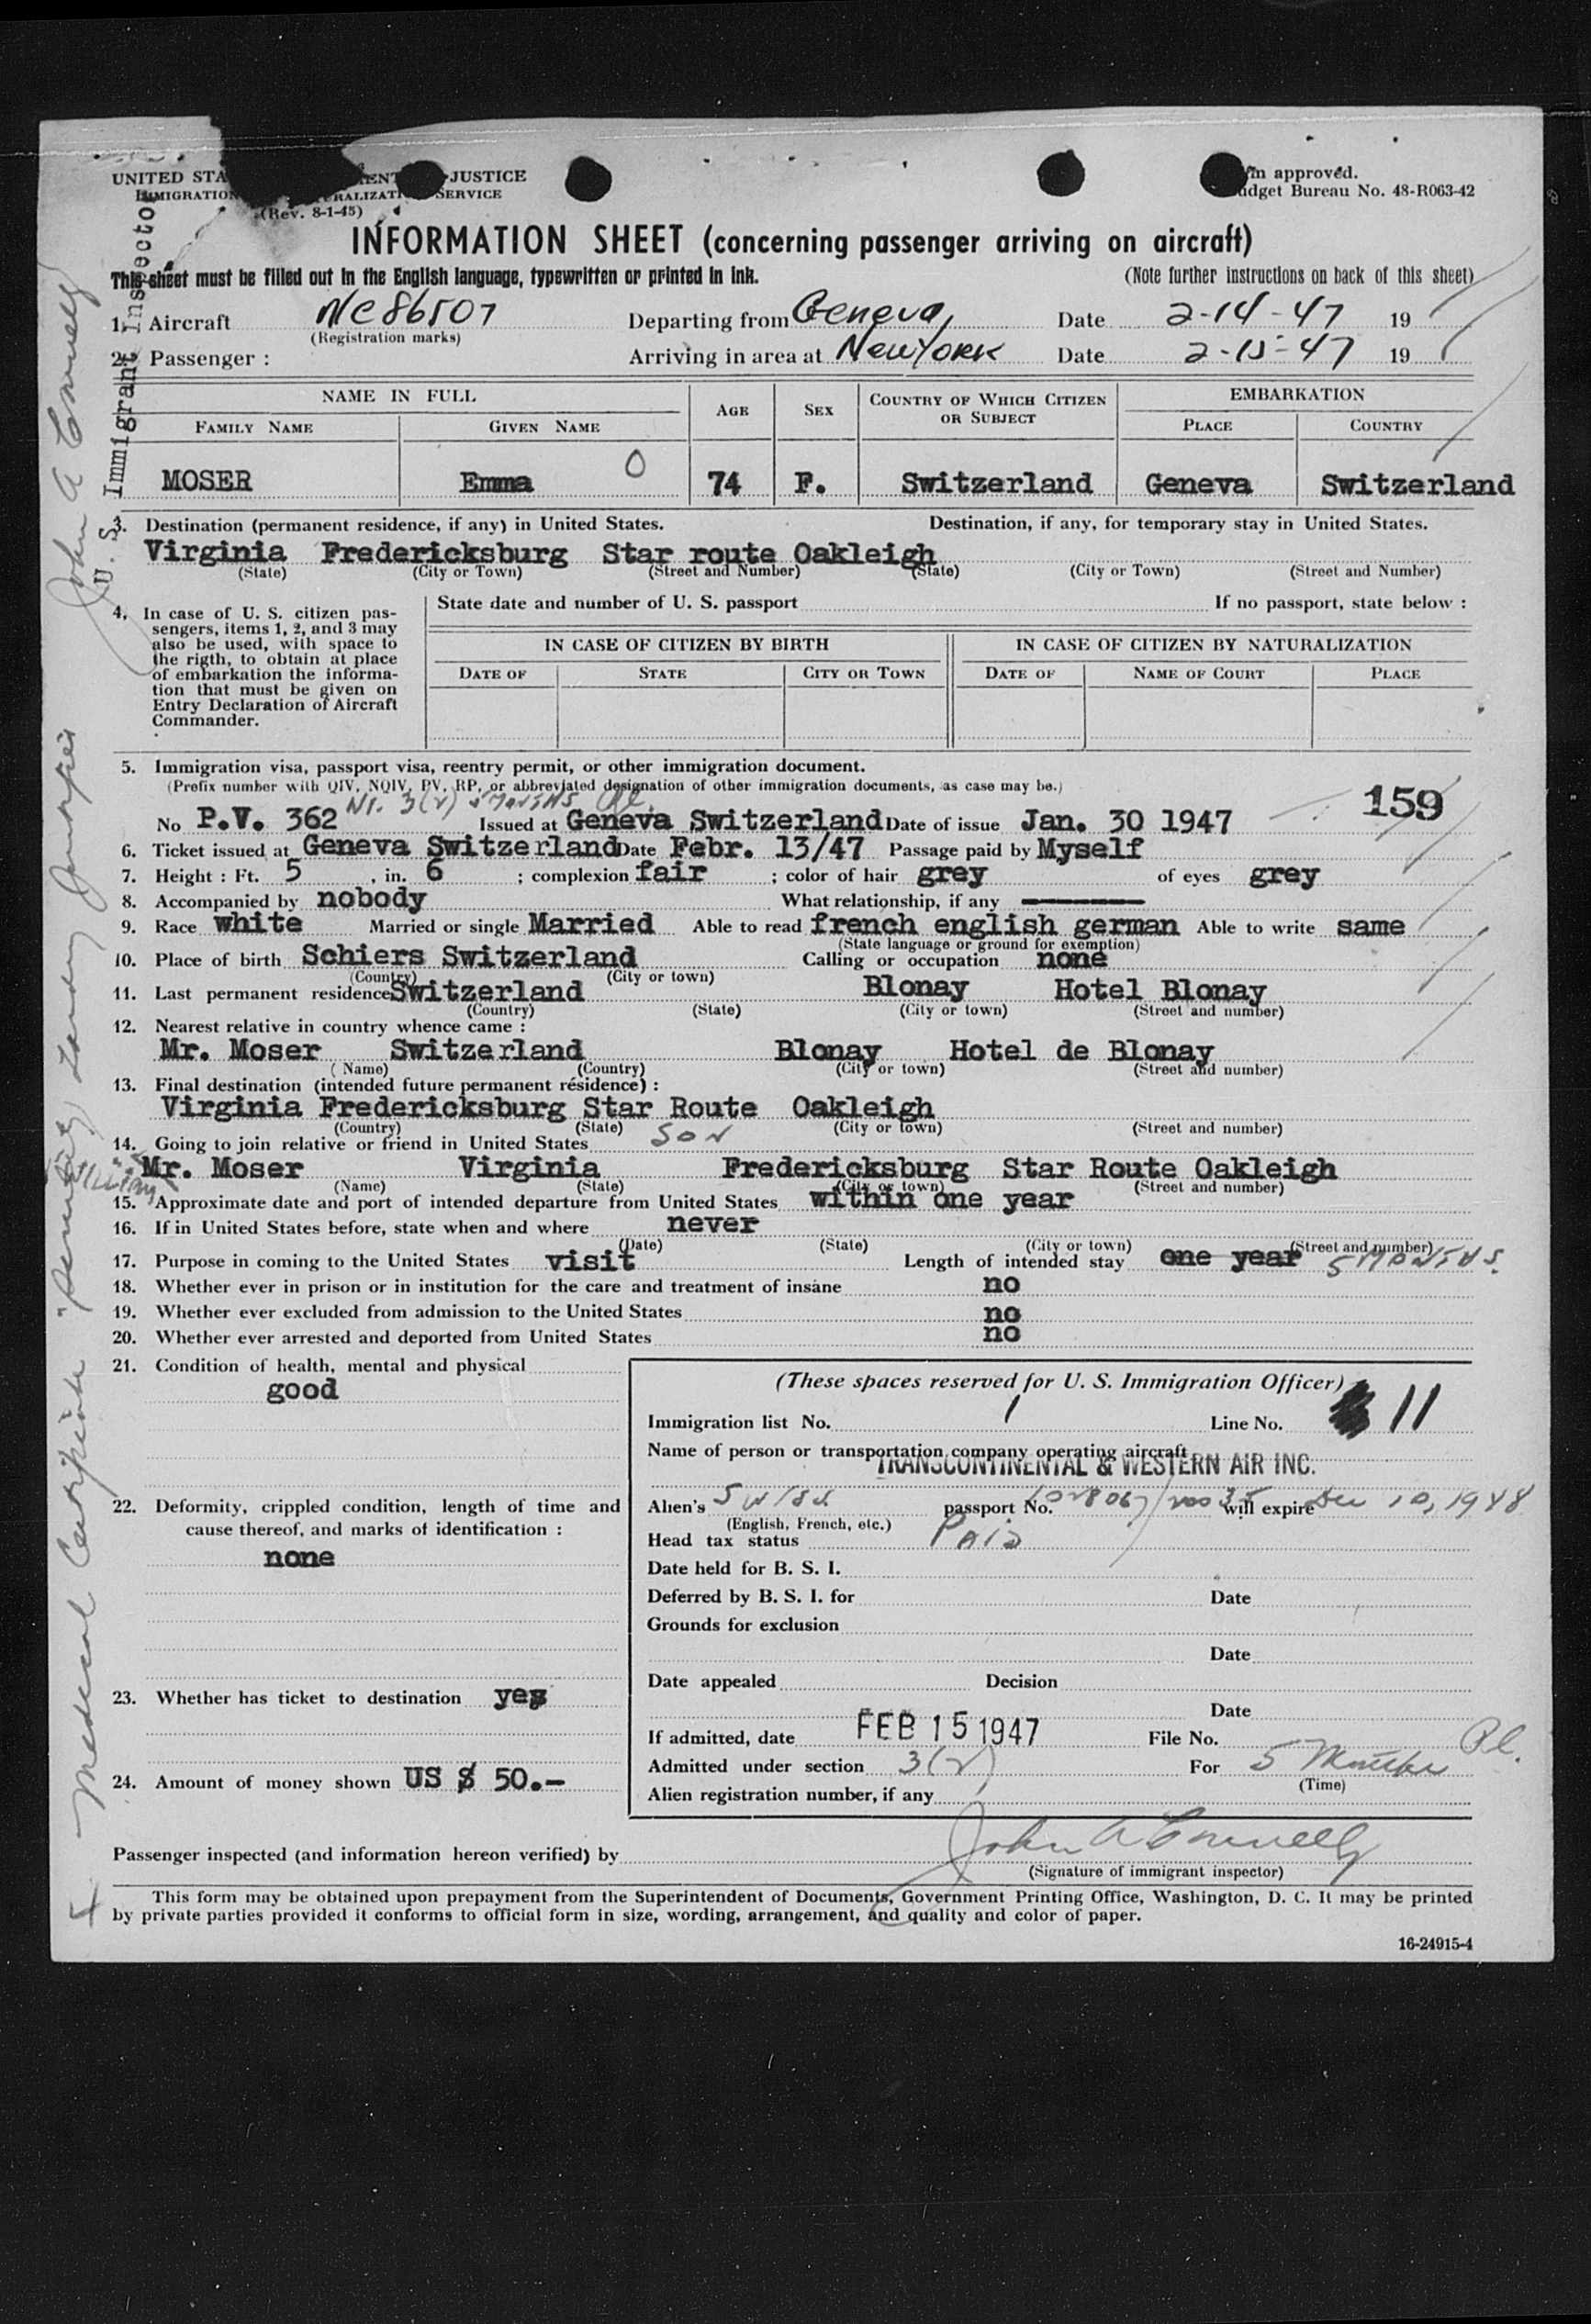 UNITED STA JUSTICE
IMMIGRATION SERVICE
(Rev. 8-1-45)
approved.
Budget Bureau No. 48-R063-42
INFORMATION SHEET (concerning passenger arriving on aircraft)
This sheet must be filled out in the English language, typewritten or printed in ink. (Note further instructions on back of this sheet)
1. Aircraft NC86507 Departing from Geneva, Date 2-14-47 19
(Registration marks)
2. Passenger : Arriving in area at New York Date 2-15-47 19
NAME IN FULL AGE SEX COUNTRY OF WHICH CITIZEN OR SUBJECT EMBARKATION
FAMILY NAME GIVEN NAME PLACE COUNTRY
MOSER Emma 0 74 F. Switzerland Geneva Switzerland
3. Destination (permanent residence, if any) in United States. Destination, if any, for temporary stay in United States.
Virginia Fredericksburg Star route Oakleigh
(State) (City or Town) (Street and Number) (State) (City or Town) (Street and Number)
4. In case of U. S. citizen pas-
sengers, items 1, 2, and 3 may
also be used, with space to
the rigth, to obtain at place
of embarkation the informa-
tion that must be given on
Entry Declaration of Aircraft
Commander.
State date and number of U. S. passport If no passport, state below :
IN CASE OF CITIZEN BY BIRTH IN CASE OF CITIZEN BY NATURALIZATION
DATE OF STATE CITY OR TOWN DATE OF NAME OF COURT PLACE
5. Immigration visa, passport visa, reentry permit, or other immigration document.
(Prefix number with QIV, NQIV, PV, RP, or abbreviated designation of other immigration documents, as case may be.)
159
No P.V. 362 3(2) Issued at Geneva Switzerland Date of issue Jan. 30 1947
6. Ticket issued at Geneva Switzerland Date Febr. 13/47 Passage paid by Myself
7. Height : Ft. 5 , in. 6 ; complexion fair ; color of hair grey of eyes grey
8. Accompanied by nobody What relationship, if any
9. Race white Married or single Married Able to read french english german Able to write same
(State language or ground for exemption)
10. Place of birth Schiers Switzerland Calling or occupation none
(Country) (City or town)
11. Last permanent residence Switzerland Blonay Hotel Blonay
(Country) (State) (City or town) (Street and number)
12. Nearest relative in country whence came :
Mr. Moser Switzerland Blonay Hotel de Blonay
( Name) (Country) (City or town) (Street and number)
13. Final destination (intended future permanent résidence) :
Virginia Fredericksburg Star Route Oakleigh
(Country) (State) (City or town) (Street and number)
14. Going to join relative or friend in United States SON
Mr. Moser Virginia Fredericksburg Star Route Oakleigh
(Name) (State) (City or town) (Street and number)
15. Approximate date and port of intended departure from United States within one year
16. If in United States before, state when and where never
(Date) (State) (City or town) (Street and number)
17. Purpose in coming to the United States visit Length of intended stay one year 5 MONTHS.
18. Whether ever in prison or in institution for the care and treatment of insane no
19. Whether ever excluded from admission to the United States no
20. Whether ever arrested and deported from United States no
21. Condition of health, mental and physical
good
22. Deformity, crippled condition, length of time and
cause thereof, and marks of identification :
none
23. Whether has ticket to destination yes
24. Amount of money shown US $ 50.-
(These spaces reserved for U. S. Immigration Officer)
Immigration list No. 1 Line No. 11
Name of person or transportation company operating aircraft
TRANSCONTINENTAL & WESTERN AIR INC.
Alien's Swiss passport No. will expire Dec 10, 1948
(English, French, etc.)
Head tax status Paid
Date held for B. S. I.
Deferred by B. S. I. for Date
Grounds for exclusion
Date
Date appealed Decision
Date
If admitted, date FEB 15 1947 File No.
Admitted under section 3(2) For 5 Months
(Time)
Alien registration number, if any
Passenger inspected (and information hereon verified) by John A Connelly
(Signature of immigrant inspector)
This form may be obtained upon prepayment from the Superintendent of Documents, Government Printing Office, Washington, D. C. It may be printed
by private parties provided it conforms to official form in size, wording, arrangement, and quality and color of paper.
16-24915-4
Medical Certificate
John A Connelly
U. S. Immigrant Inspector